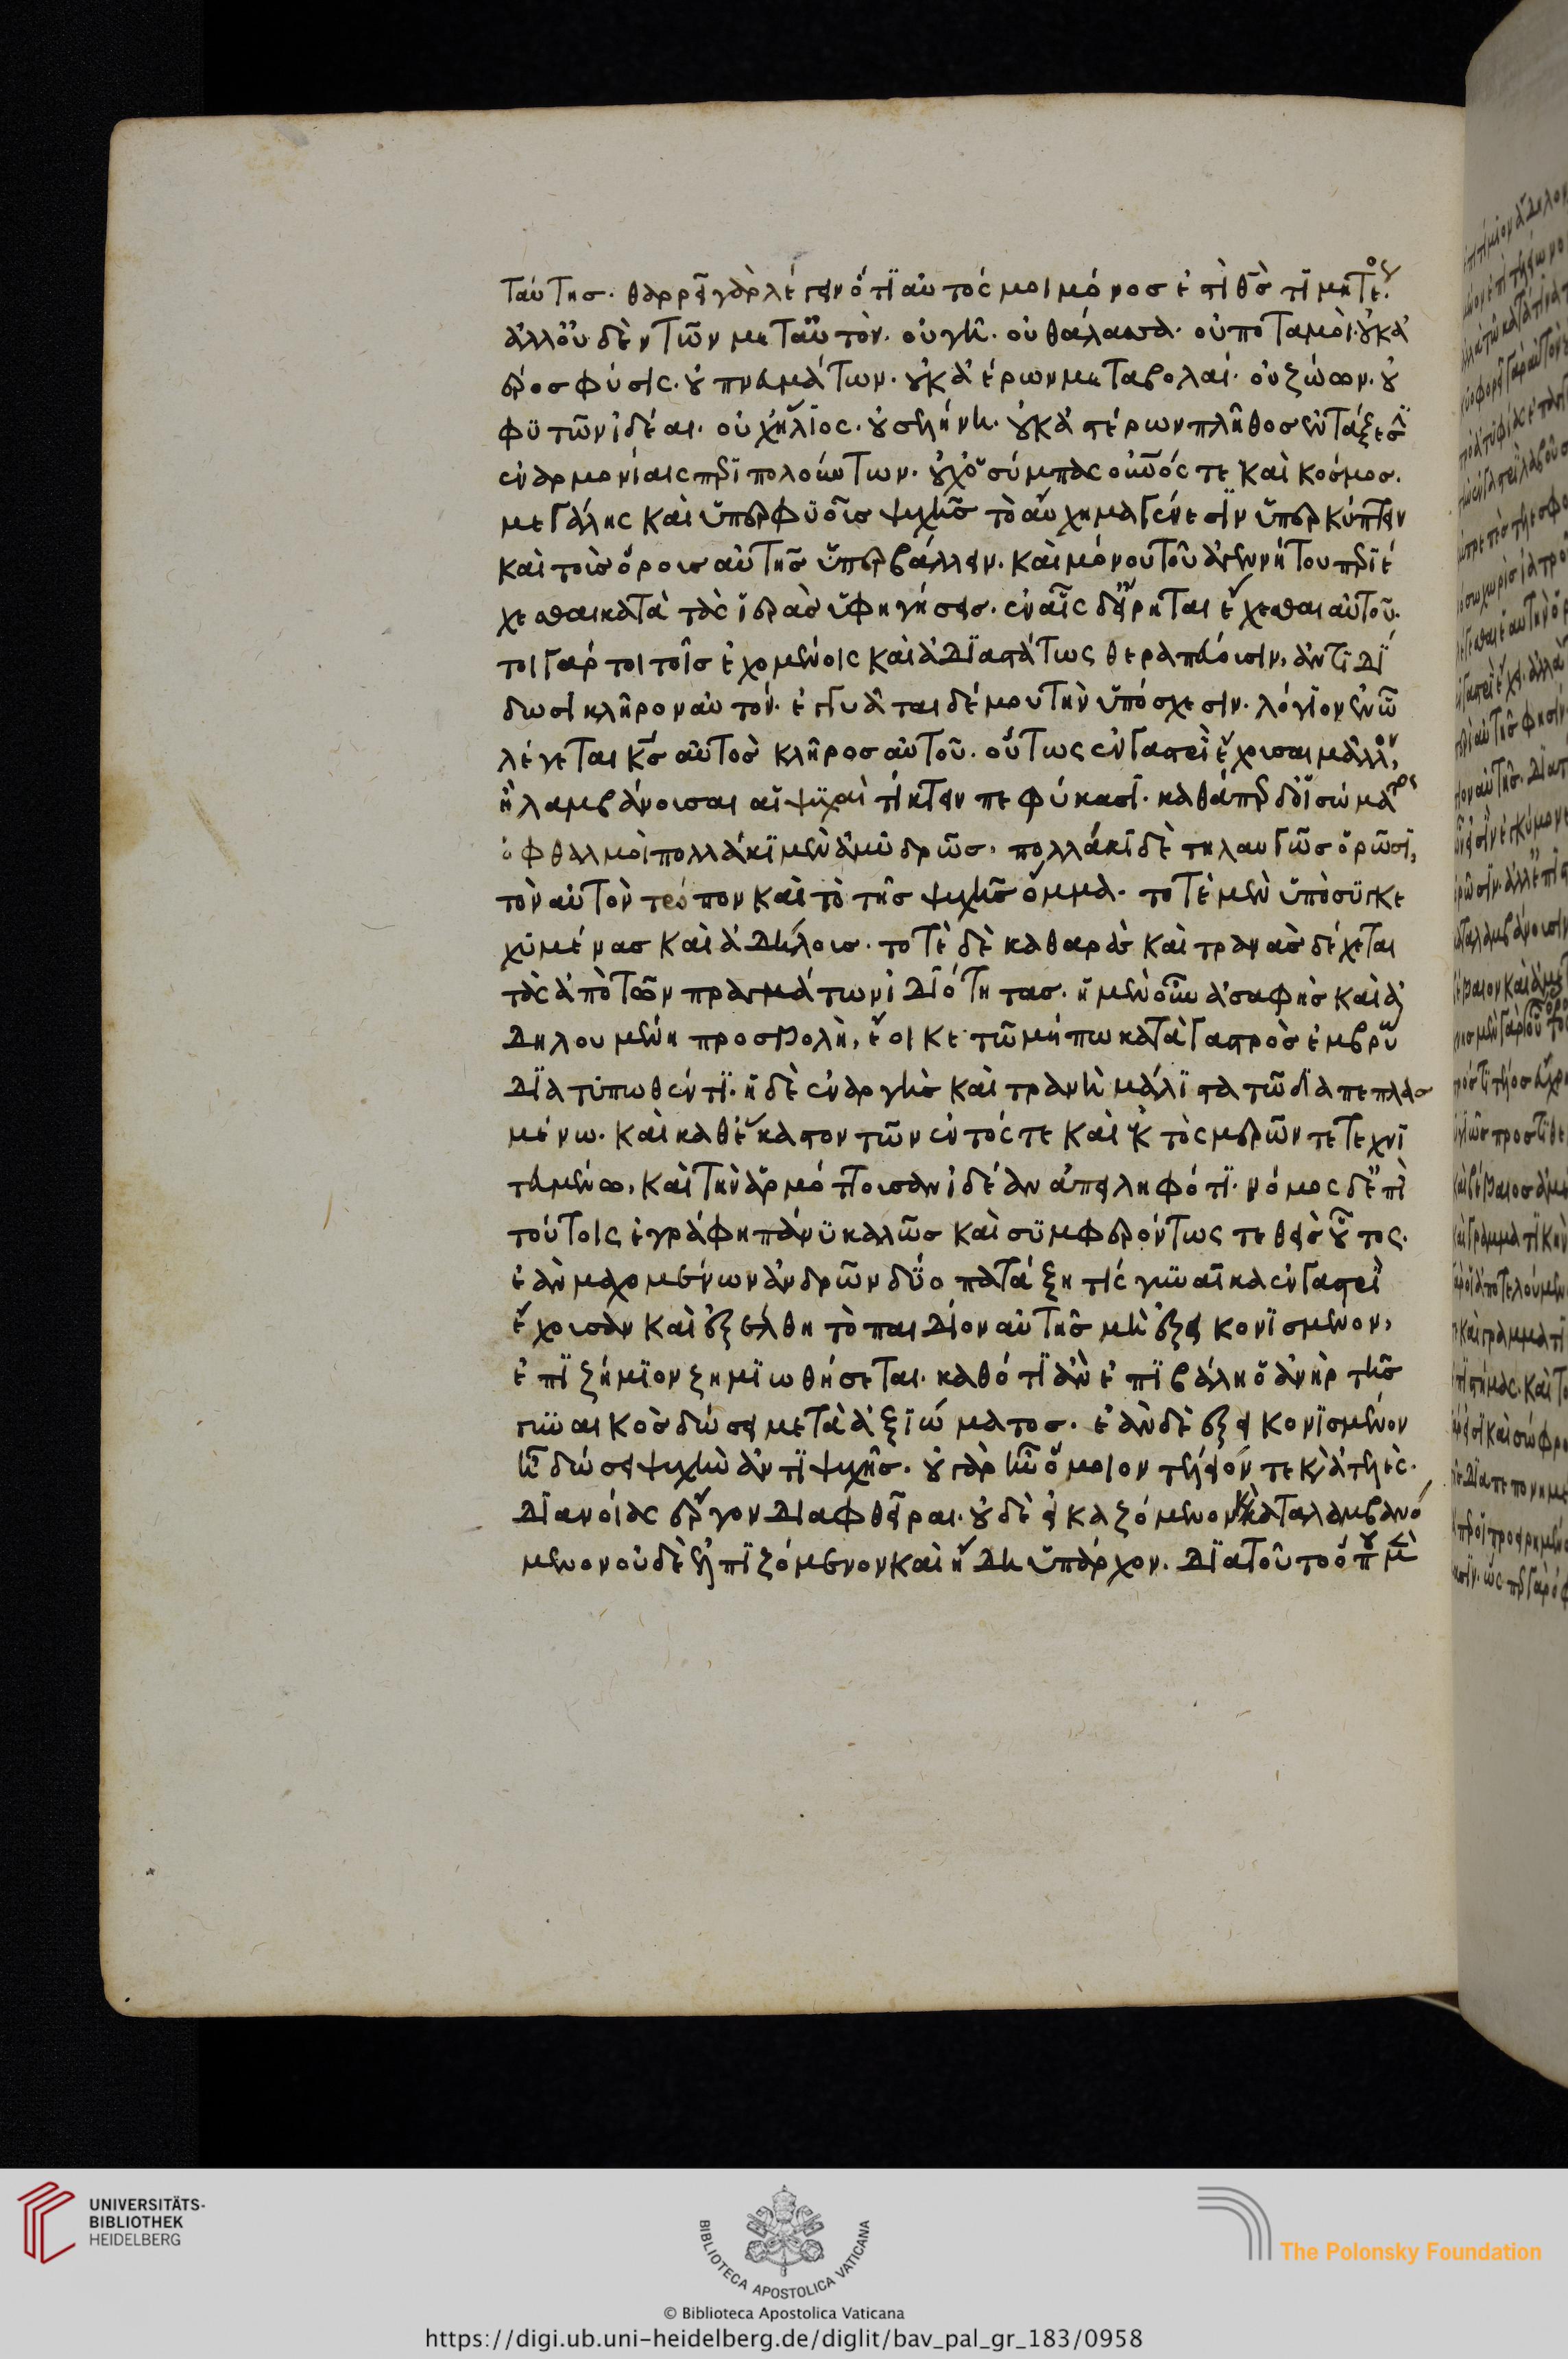 ταύτης· θαρρεῖ γὰρ λέγειν ὅτι αὐτός μοι μόνος ἐστὶ θς τιμητέος
ἀλλ' οὐδὲν τῶν μετ' αὐτόν· οὐ γῆ· οὐ θάλασσα· οὐ ποταμοὶ· οὐκ ἀ
έρος φύσις· οὐ πνευμάτων· οὐκ ἀέρων μεταβολαί· οὐ ζώων· οὐ
φυτῶν ἰδέαι· οὐχ ἥλιος· οὐ σελήνη· οὐκ ἀστέρων πλῆθος ἐν τάξεσι
ἐναρμονίαις περιπολούντων· οὐχ ὁ σύμπας οὐνός τε καὶ κόσμος·
μεγάλης καὶ ὑπερφυοῖς ψυχῆς τὸ αὔχημα γένεσιν ὑπερκύπτειν
καὶ τοῖς ὅροις αὐτῆς ὑπερβάλλειν· καὶ μόνου τοῦ ἀγεννήτου περιέ
χεσθαι κατὰ τὰς ἱερὰς ὑφηγήσεις· ἐν αἷς διείρηται ἔχεσθαι αὐτοῦ·
τοιγάρτοι τοῖς ἐχομένοις καὶ ἀδιαστάτως θεραπεύουσιν, ἀντιδί
δωσι κλῆρον αὐτόν· ἐγγυᾶται δέ μου τὴν ὑπόσχεσιν· λόγιον ἐν ᾧ
λέγεται κς αὐτὸς κλῆρος αὐτοῦ· οὕτως ἐν γαστρὶ ἔχουσαι μᾶλλον,
ἢ λαμβάνουσαι αἱ ψυχαὶ τίκτειν πεφύκασι· καθάπερ δ' οἱ σώματος
ὀφθαλμοὶ πολλάκι μὲν ἀμυδρῶς· πολλάκι δὲ τηλαυγῶς ὁρῶσι,
τὸν αὐτὸν τρόπον καὶ τὸ τῆς ψυχῆς ὄμμα· τοτὲ μὲν ὑποσυγκε
χυμένας καὶ ἀδήλους· τοτὲ δὲ καθαρὰς καὶ τρανὰς δέχεται
τὰς ἀπὸ τῶν πραγμάτων ἰδιότητας· ἡ μὲν οὖν ἀσαφὴς καὶ ἀ
δηλουμένη προσβολὴ, ἔοικε τῷ μήπω κατὰ γαστρὸς ἐμβρύῳ
διατυπωθέντι· ἡ δὲ ἐναργὴς καὶ τρανὴ μάλιστα τῷ διαπεπλασ
μένῳ· καὶ καθ' ἕκαστον τῶν ἐντός τε καὶ ἐκτὸς μερῶν τετεχνι
τευμένῳ, καὶ τὴν ἁρμόττουσαν ἰδέαν ἀπειληφότι· νόμος δ' ἐπὶ
τούτοις ἐγράφη πάνυ καλῶς καὶ συμφερόντως τεθεὶς οὗτος·
ἐὰν μαχομένων ἀνδρῶν δύο πατάξη τίς γυναῖκα ἐν γαστρὶ
ἔχουσαν καὶ ἐξέλθη τὸ παιδίον αὐτῆς μὴ ἐξεικονισμένον,
ἐπιζήμιον ζημιωθήσεται· καθότι ἂν ἐπιβάλη ὁ ἀνὴρ τῆς
γυναικὸς δώσει μετὰ ἀξιώματος· ἐὰν δὲ ἐξεικονισμένον
ἦν δώσει ψυχὴν ἀντὶ ψυχῆς· οὐ γὰρ ἦν ὅμοιον τέλειόν τε κ(αὶ) ἀτελὲς
διανοίας ἔργον διαφθεῖραι· οὐδὲ εἰκαζόμενον κ(αὶ) καταλαμβανό
μενον οὐδὲ ἐλπιζόμενον καὶ ἤδη ὑπάρχον· διὰ τοῦτο ὅπου μὲν
UNIVERSITÄTS-
BIBLIOTHEK
HEIDELBERG
BIBLIOTECA APOSTOLICA VATICANA
The Polonsky Foundation
© Biblioteca Apostolica Vaticana
https://digi.ub.uni-heidelberg.de/diglit/bav_pal_gr_183/0958